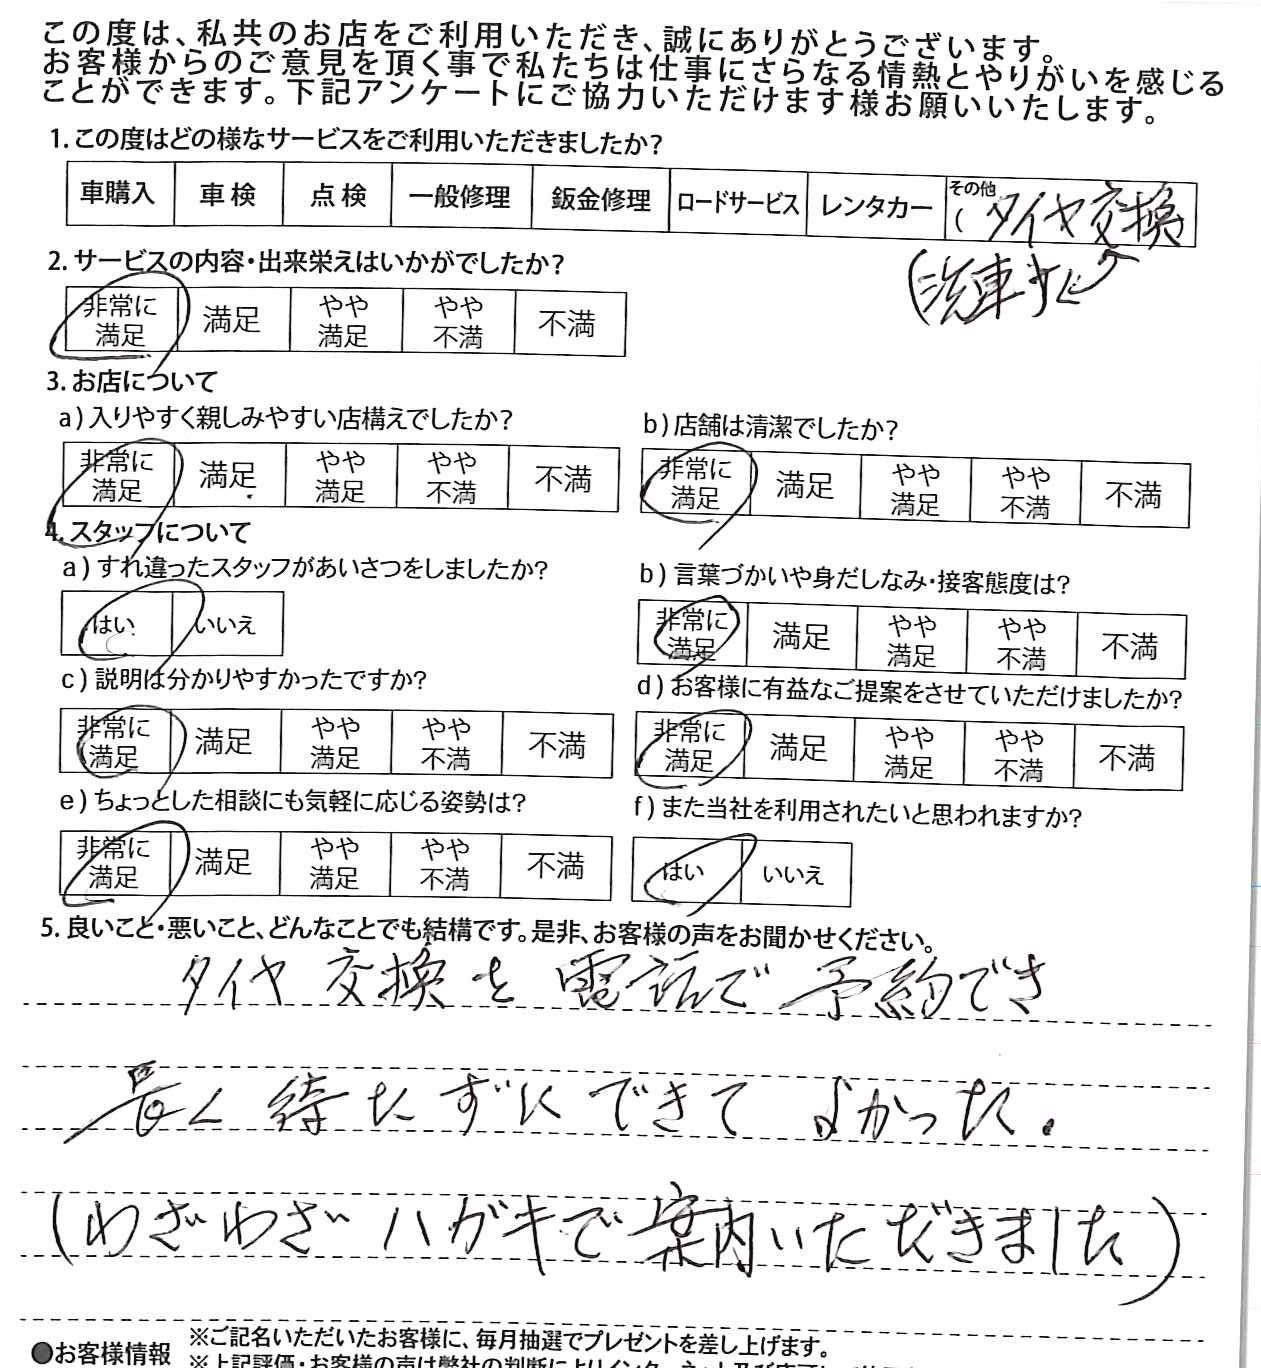 この度は、私共のお店をご利用いただき、誠にありがとうございます。
お客様からのご意見を頂く事で私たちは仕事にさらなる情熱とやりがいを感じる
ことができます。下記アンケートにご協力いただけます様お願いいたします。
1.この度はどの様なサービスをご利用いただきましたか?
車購入 車検 点検 一般修理 鈑金修理 ロードサービス レンタカー その他
( タイヤ交換)
2.サービスの内容・出来栄えはいかがでしたか?
(洗車
非常に満足 満足 やや満足 やや不満 不満
3.お店について
a)入りやすく親しみやすい店構えでしたか?
非常に満足 満足 やや満足 やや不満 不満
b)店舗は清潔でしたか?
非常に満足 満足 やや満足 やや不満 不満
4.スタッフについて
a)すれ違ったスタッフがあいさつをしましたか?
はい いいえ
b)言葉づかいや身だしなみ・接客態度は?
非常に満足 満足 やや満足 やや不満 不満
c)説明は分かりやすかったですか?
非常に満足 満足 やや満足 やや不満 不満
d)お客様に有益なご提案をさせていただけましたか?
非常に満足 満足 やや満足 やや不満 不満
e)ちょっとした相談にも気軽に応じる姿勢は?
非常に満足 満足 やや満足 やや不満 不満
f)また当社を利用されたいと思われますか?
はい いいえ
5.良いこと・悪いこと、どんなことでも結構です。是非、お客様の声をお聞かせください。
タイヤ交換を電話で予約でき
長く待たずにできてよかった.
(わざわざハガキで案内いただきました)
●お客様情報 ※ご記名いただいたお客様に、毎月抽選でプレゼントを差し上げます。